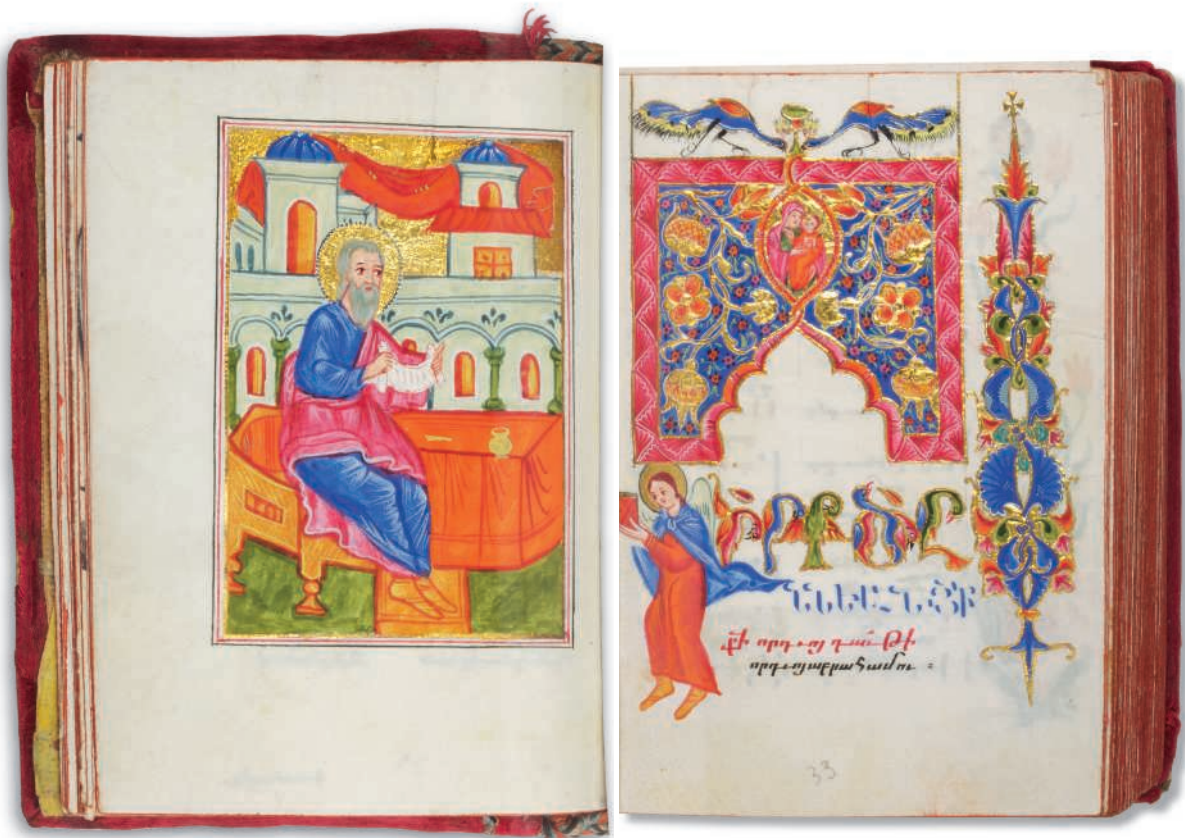 ԳԻՐՔ ԾԸ
ՆՆԴԵԱՆ ՅԻ
քի որդւոյ դաւթի
որդւոյ աբրահամու ։
33